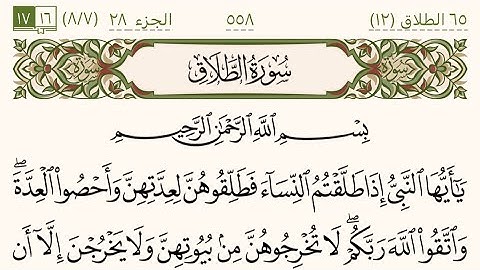 ٦٥ الطلاق (١٢) ٥٥٨ الجزء ٢٨ (٨/٧) ١٦ ١٧
سُورَةُ ٱلطَّلَاقِ
بِسْمِ ٱللَّهِ ٱلرَّحْمَٰنِ ٱلرَّحِيمِ
يَٰٓأَيُّهَا ٱلنَّبِىُّ إِذَا طَلَّقْتُمُ ٱلنِّسَآءَ فَطَلِّقُوهُنَّ لِعِدَّتِهِنَّ وَأَحْصُوا۟ ٱلْعِدَّةَۖ
وَٱتَّقُوا۟ ٱللَّهَ رَبَّكُمْۖ لَا تُخْرِجُوهُنَّ مِنۢ بُيُوتِهِنَّ وَلَا يَخْرُجْنَ إِلَّآ أَن